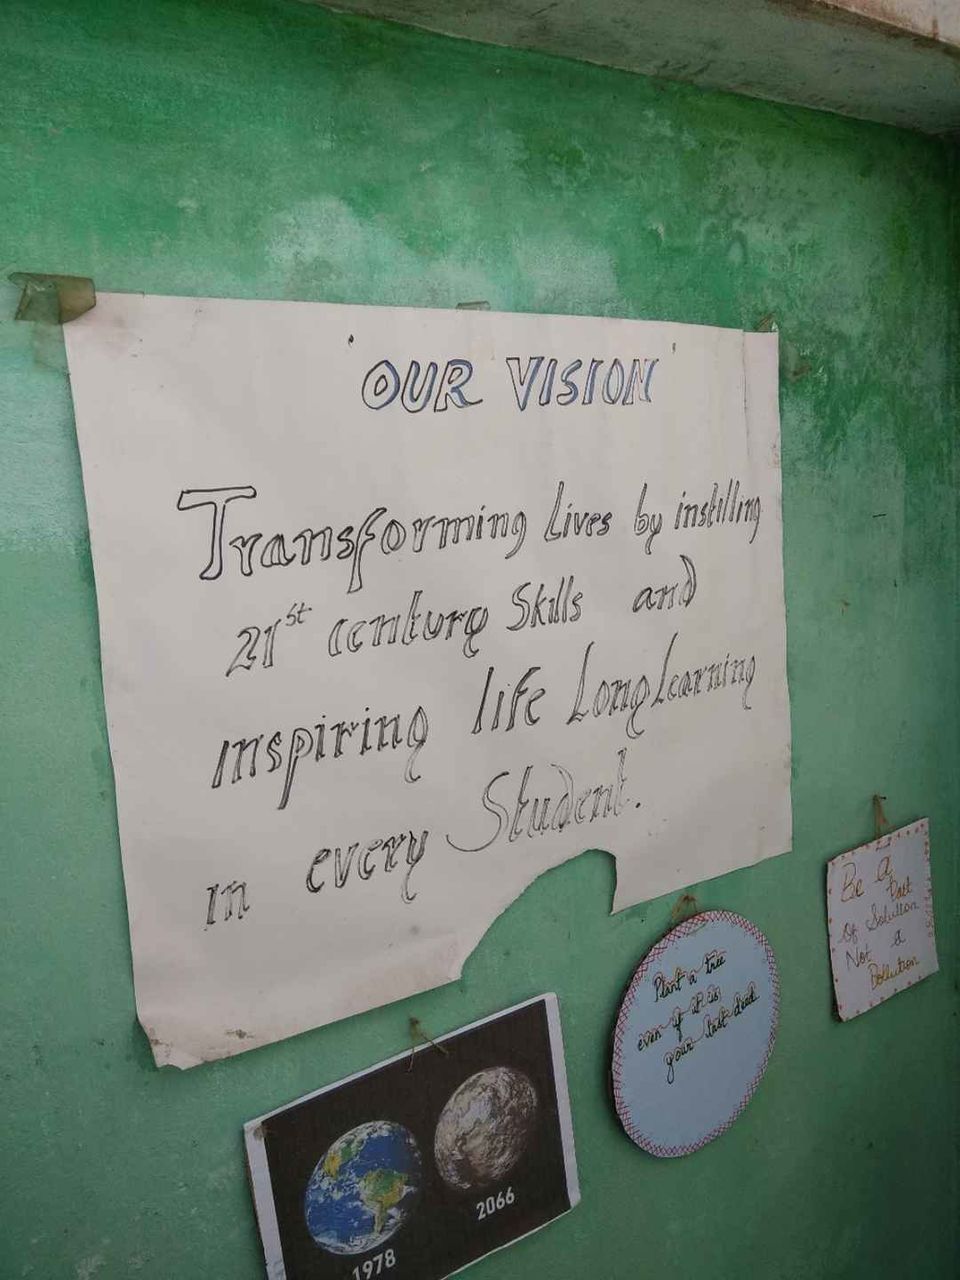 'OUR VISION'
Transforming Lives by instilling
21st century Skills and
inspiring life Long Learning
in every Student.
Plant a tree
even if it is
your last deed
Be A
Part
Of Solution
Not a
Pollution
1978
2066